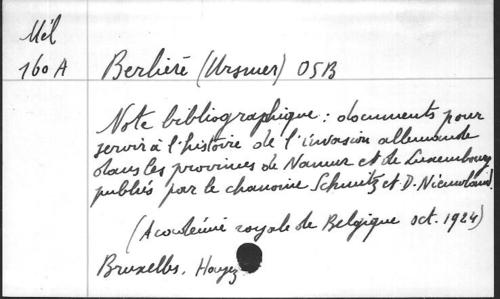 Mél
160 A Berlieré (Ursmer) OSB
Note bibliographique : documents pour
servir à l'histoire de l'invasion allemande
dans les provinces de Namur et de Luxembourg
publiés par le chanoine Schmitz et D. Nieuwland.
(Académie royale de Belgique oct. 1924)
Bruxelles, Hayez